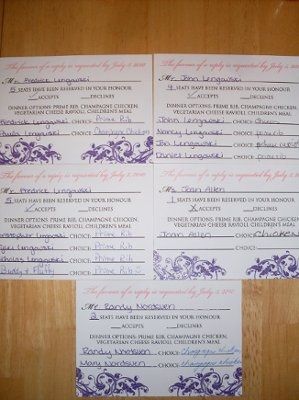 The favour of a reply is requested by July 5, 2010
Mr. Fredrick Lengowski
5 SEATS HAVE BEEN RESERVED IN YOUR HONOUR
✓ ACCEPTS DECLINES
DINNER OPTIONS: PRIME RIB, CHAMPAGNE CHICKEN,
VEGETARIAN CHEESE RAVIOLI, CHILDREN'S MEAL
Fredrick Lengowski CHOICE: Prime Rib
Paula Lengowski CHOICE: Champagne Chicken
The favour of a reply is requested by July 5, 2010
Mr. John Lengowski
4 SEATS HAVE BEEN RESERVED IN YOUR HONOUR
✓ ACCEPTS DECLINES
DINNER OPTIONS: PRIME RIB, CHAMPAGNE CHICKEN,
VEGETARIAN CHEESE RAVIOLI, CHILDREN'S MEAL
John Lengowski CHOICE:
Nancy Lengowski CHOICE: prime rib
Lengowski CHOICE:
Daniel Lengowski CHOICE: prime rib
The favour of a reply is requested by July 5, 2010
Fredrick Lengowski
5 SEATS HAVE BEEN RESERVED IN YOUR HONOUR
ACCEPTS DECLINES
DINNER OPTIONS: PRIME RIB, CHAMPAGNE CHICKEN,
VEGETARIAN CHEESE RAVIOLI, CHILDREN'S MEAL
Lengowski CHOICE: Prime Rib
Lengowski CHOICE: Prime Rib
Lengowski CHOICE: Prime Rib
Buddy + Fluffy CHOICE: Prime Rib
The favour of a reply is requested by July 5, 2010
Ms. Joan Allen
1 SEATS HAVE BEEN RESERVED IN YOUR HONOUR
X ACCEPTS DECLINES
DINNER OPTIONS: PRIME RIB, CHAMPAGNE CHICKEN,
VEGETARIAN CHEESE RAVIOLI, CHILDREN'S MEAL
Joann Allen CHOICE: Chicken
The favour of a reply is requested by July 5, 2010
Mr. Randy Nordsven
2 SEATS HAVE BEEN RESERVED IN YOUR HONOUR
ACCEPTS DECLINES
DINNER OPTIONS: PRIME RIB, CHAMPAGNE CHICKEN,
VEGETARIAN CHEESE RAVIOLI, CHILDREN'S MEAL
Randy Nordsven CHOICE: champagne chicken
Mary Nordsven CHOICE: champagne chicken